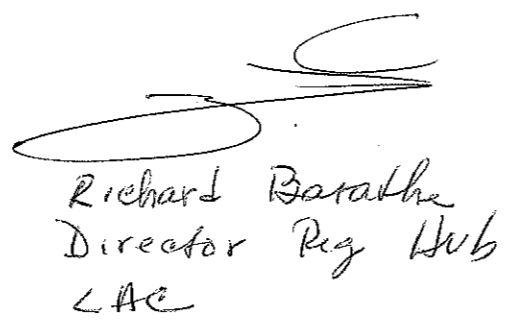 Richard Barathe
Director Reg Hub
LAC